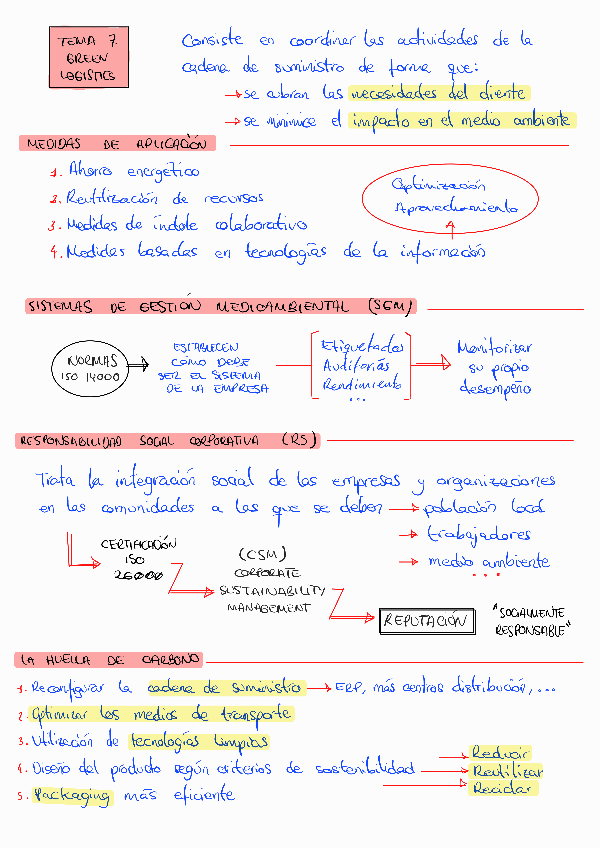 TEMA 7.
GREEN
LOGISTICS
Consiste en coordinar las actividades de la
cadena de suministro de forma que:
→ se cubran las necesidades del cliente
→ se minimice el impacto en el medio ambiente
MEDIDAS DE APLICACIÓN
1. Ahorro energético
2. Reutilización de recursos
3. Medidas de índole colaborativo
4. Medidas basadas en tecnologías de la información
Optimización
Aprovechamiento
SISTEMAS DE GESTIÓN MEDIOAMBIENTAL (SGM)
NORMAS
ISO 14000
ESTABLECEN
CÓMO DEBE
SER EL SISTEMA
DE LA EMPRESA
Etiquetados
Auditorías
Rendimiento
...
Monitorizar
su propio
desempeño
RESPONSABILIDAD SOCIAL CORPORATIVA (RS)
Trata la integración social de las empresas y organizaciones
en las comunidades a las que se deben → población local
→ trabajadores
→ medio ambiente
...
CERTIFICACIÓN
ISO
26000
(CSM)
CORPORATE
SUSTAINABILITY
MANAGEMENT
REPUTACIÓN
"SOCIALMENTE
RESPONSABLE"
LA HUELLA DE CARBONO
1. Reconfigurar la cadena de suministro → ERP, más centros distribución, ...
2. Optimizar los medios de transporte
3. Utilización de tecnologías limpias
4. Diseño del producto según criterios de sostenibilidad
5. Packaging más eficiente
→ Reducir
→ Reutilizar
→ Reciclar